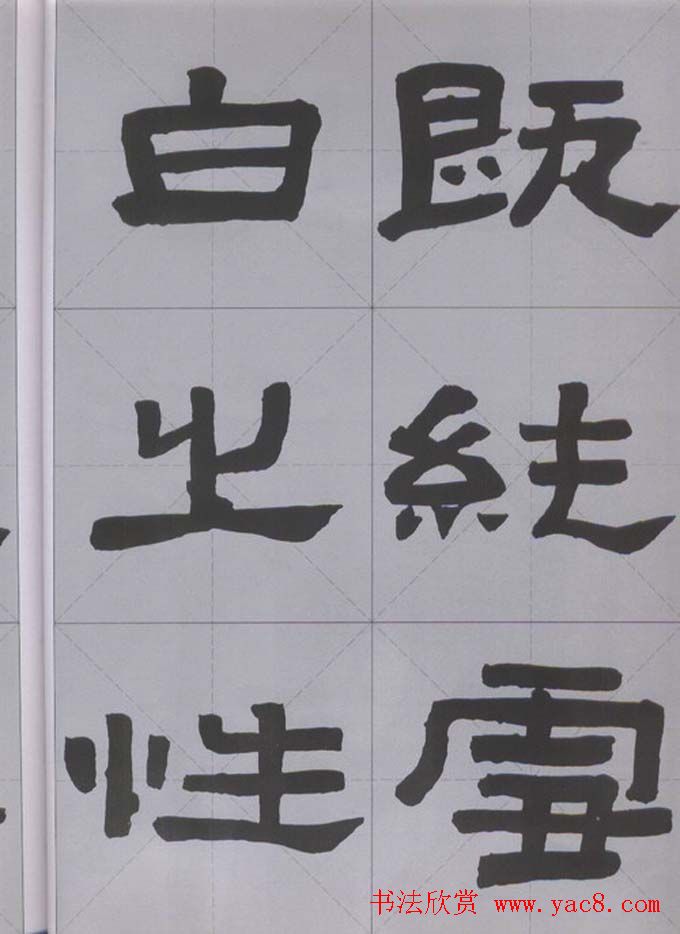 既純雪
白之性
书法欣赏 www.yac8.com